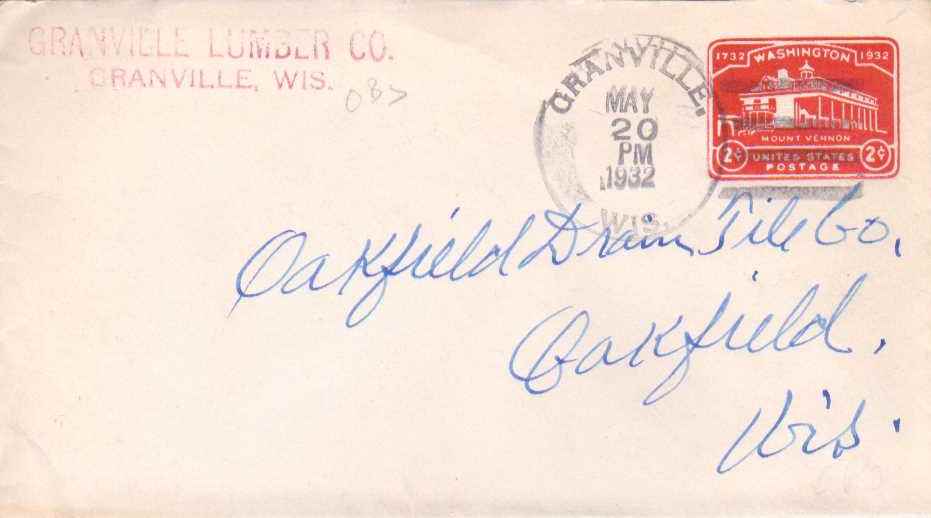 GRANVILLE LUMBER CO.
GRANVILLE, WIS.
GRANVILLE,
MAY
20
PM
1932
WIS.
1732 WASHINGTON 1932
MOUNT VERNON
2¢ UNITED STATES 2¢
POSTAGE
Oakfield Drain Tile Co,
Oakfield,
Wis.